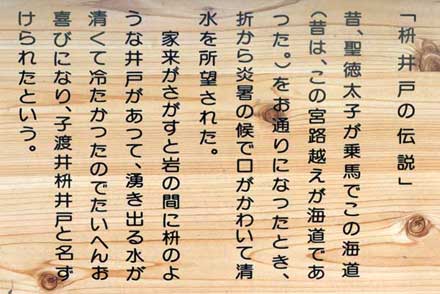 「枡井戸の伝説」
昔、聖徳太子が乗馬でこの海道
(昔は、この宮路越えが海道であ
った。)をお通りになったとき、
折から炎暑の候で口がかわいて清
水を所望された。
家来がさがすと岩の間に枡のよ
うな井戸があって、湧き出る水が
清くて冷たかったのでたいへんお
喜びになり、子渡井枡井戸と名ず
けられたという。